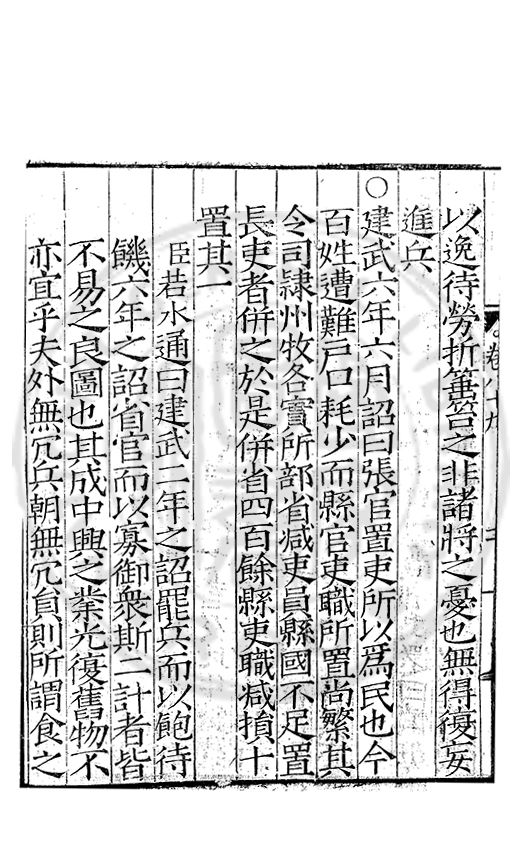 以逸待勞折箠笞之非諸將之憂也無得復妄
進兵
○建武六年六月詔曰張官置吏所以爲民也今
百姓遭難戶口耗少而縣官吏職所置尚繁其
令司隷州牧各實所部省减吏員縣國不足置
長吏者併之於是併省四百餘縣吏職减損十
置其一
臣若水通曰建武二年之詔罷兵而以飽待
饑六年之詔省官而以寡御衆斯二計者皆
不易之良圖也其成中興之業光復舊物不
亦宜乎夫外無冗兵朝無冗員則所謂食之